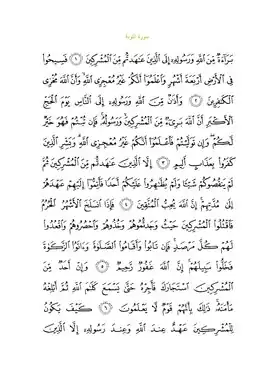 سورة التوبة
بَرَآءَةٌ مِّنَ ٱللَّهِ وَرَسُولِهِۦٓ إِلَى ٱلَّذِينَ عَٰهَدتُّم مِّنَ ٱلْمُشْرِكِينَ ١ فَسِيحُوا۟
فِى ٱلْأَرْضِ أَرْبَعَةَ أَشْهُرٍ وَٱعْلَمُوٓا۟ أَنَّكُمْ غَيْرُ مُعْجِزِى ٱللَّهِ وَأَنَّ ٱللَّهَ مُخْزِى
ٱلْكَٰفِرِينَ ٢ وَأَذَٰنٌ مِّنَ ٱللَّهِ وَرَسُولِهِۦٓ إِلَى ٱلنَّاسِ يَوْمَ ٱلْحَجِّ
ٱلْأَكْبَرِ أَنَّ ٱللَّهَ بَرِىٓءٌ مِّنَ ٱلْمُشْرِكِينَ وَرَسُولُهُۥ فَإِن تُبْتُمْ فَهُوَ خَيْرٌ
لَّكُمْ وَإِن تَوَلَّيْتُمْ فَٱعْلَمُوٓا۟ أَنَّكُمْ غَيْرُ مُعْجِزِى ٱللَّهِ وَبَشِّرِ ٱلَّذِينَ
كَفَرُوا۟ بِعَذَابٍ أَلِيمٍ ٣ إِلَّا ٱلَّذِينَ عَٰهَدتُّم مِّنَ ٱلْمُشْرِكِينَ ثُمَّ
لَمْ يَنقُصُوكُمْ شَيْـًٔا وَلَمْ يُظَٰهِرُوا۟ عَلَيْكُمْ أَحَدًا فَأَتِمُّوٓا۟ إِلَيْهِمْ عَهْدَهُمْ
إِلَىٰ مُدَّتِهِمْ إِنَّ ٱللَّهَ يُحِبُّ ٱلْمُتَّقِينَ ٤ فَإِذَا ٱنسَلَخَ ٱلْأَشْهُرُ ٱلْحُرُمُ
فَٱقْتُلُوا۟ ٱلْمُشْرِكِينَ حَيْثُ وَجَدتُّمُوهُمْ وَخُذُوهُمْ وَٱحْصُرُوهُمْ وَٱقْعُدُوا۟
لَهُمْ كُلَّ مَرْصَدٍ فَإِن تَابُوا۟ وَأَقَامُوا۟ ٱلصَّلَوٰةَ وَءَاتَوُا۟ ٱلزَّكَوٰةَ
فَخَلُّوا۟ سَبِيلَهُمْ إِنَّ ٱللَّهَ غَفُورٌ رَّحِيمٌ ٥ وَإِنْ أَحَدٌ مِّنَ
ٱلْمُشْرِكِينَ ٱسْتَجَارَكَ فَأَجِرْهُ حَتَّىٰ يَسْمَعَ كَلَٰمَ ٱللَّهِ ثُمَّ أَبْلِغْهُ
مَأْمَنَهُۥ ذَٰلِكَ بِأَنَّهُمْ قَوْمٌ لَّا يَعْلَمُونَ ٦ كَيْفَ يَكُونُ
لِلْمُشْرِكِينَ عَهْدٌ عِندَ ٱللَّهِ وَعِندَ رَسُولِهِۦٓ إِلَّا ٱلَّذِينَ